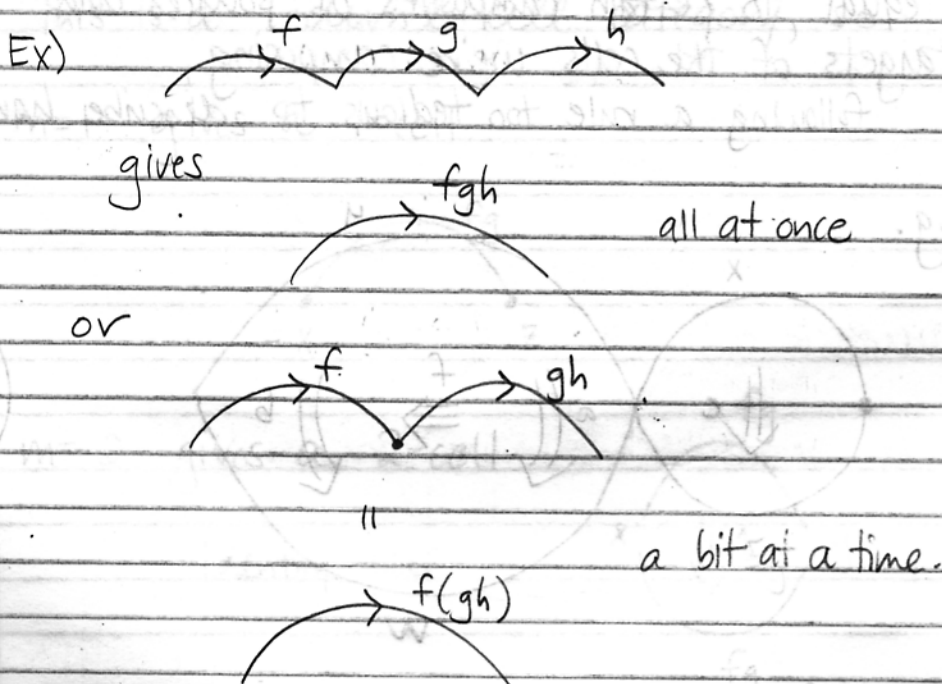 Ex) f g h
gives
fgh
all at once
or
f gh
||
a bit at a time.
f(gh)